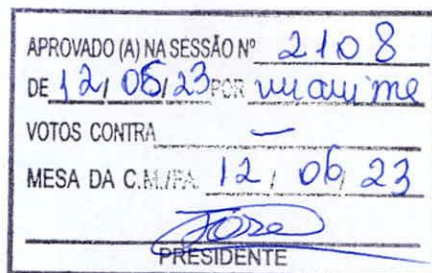 APROVADO (A) NA SESSÃO Nº 2108
DE 12/06/23 POR unanime
VOTOS CONTRA —
MESA DA C.M./PA. 12 / 06 / 23
PRESIDENTE